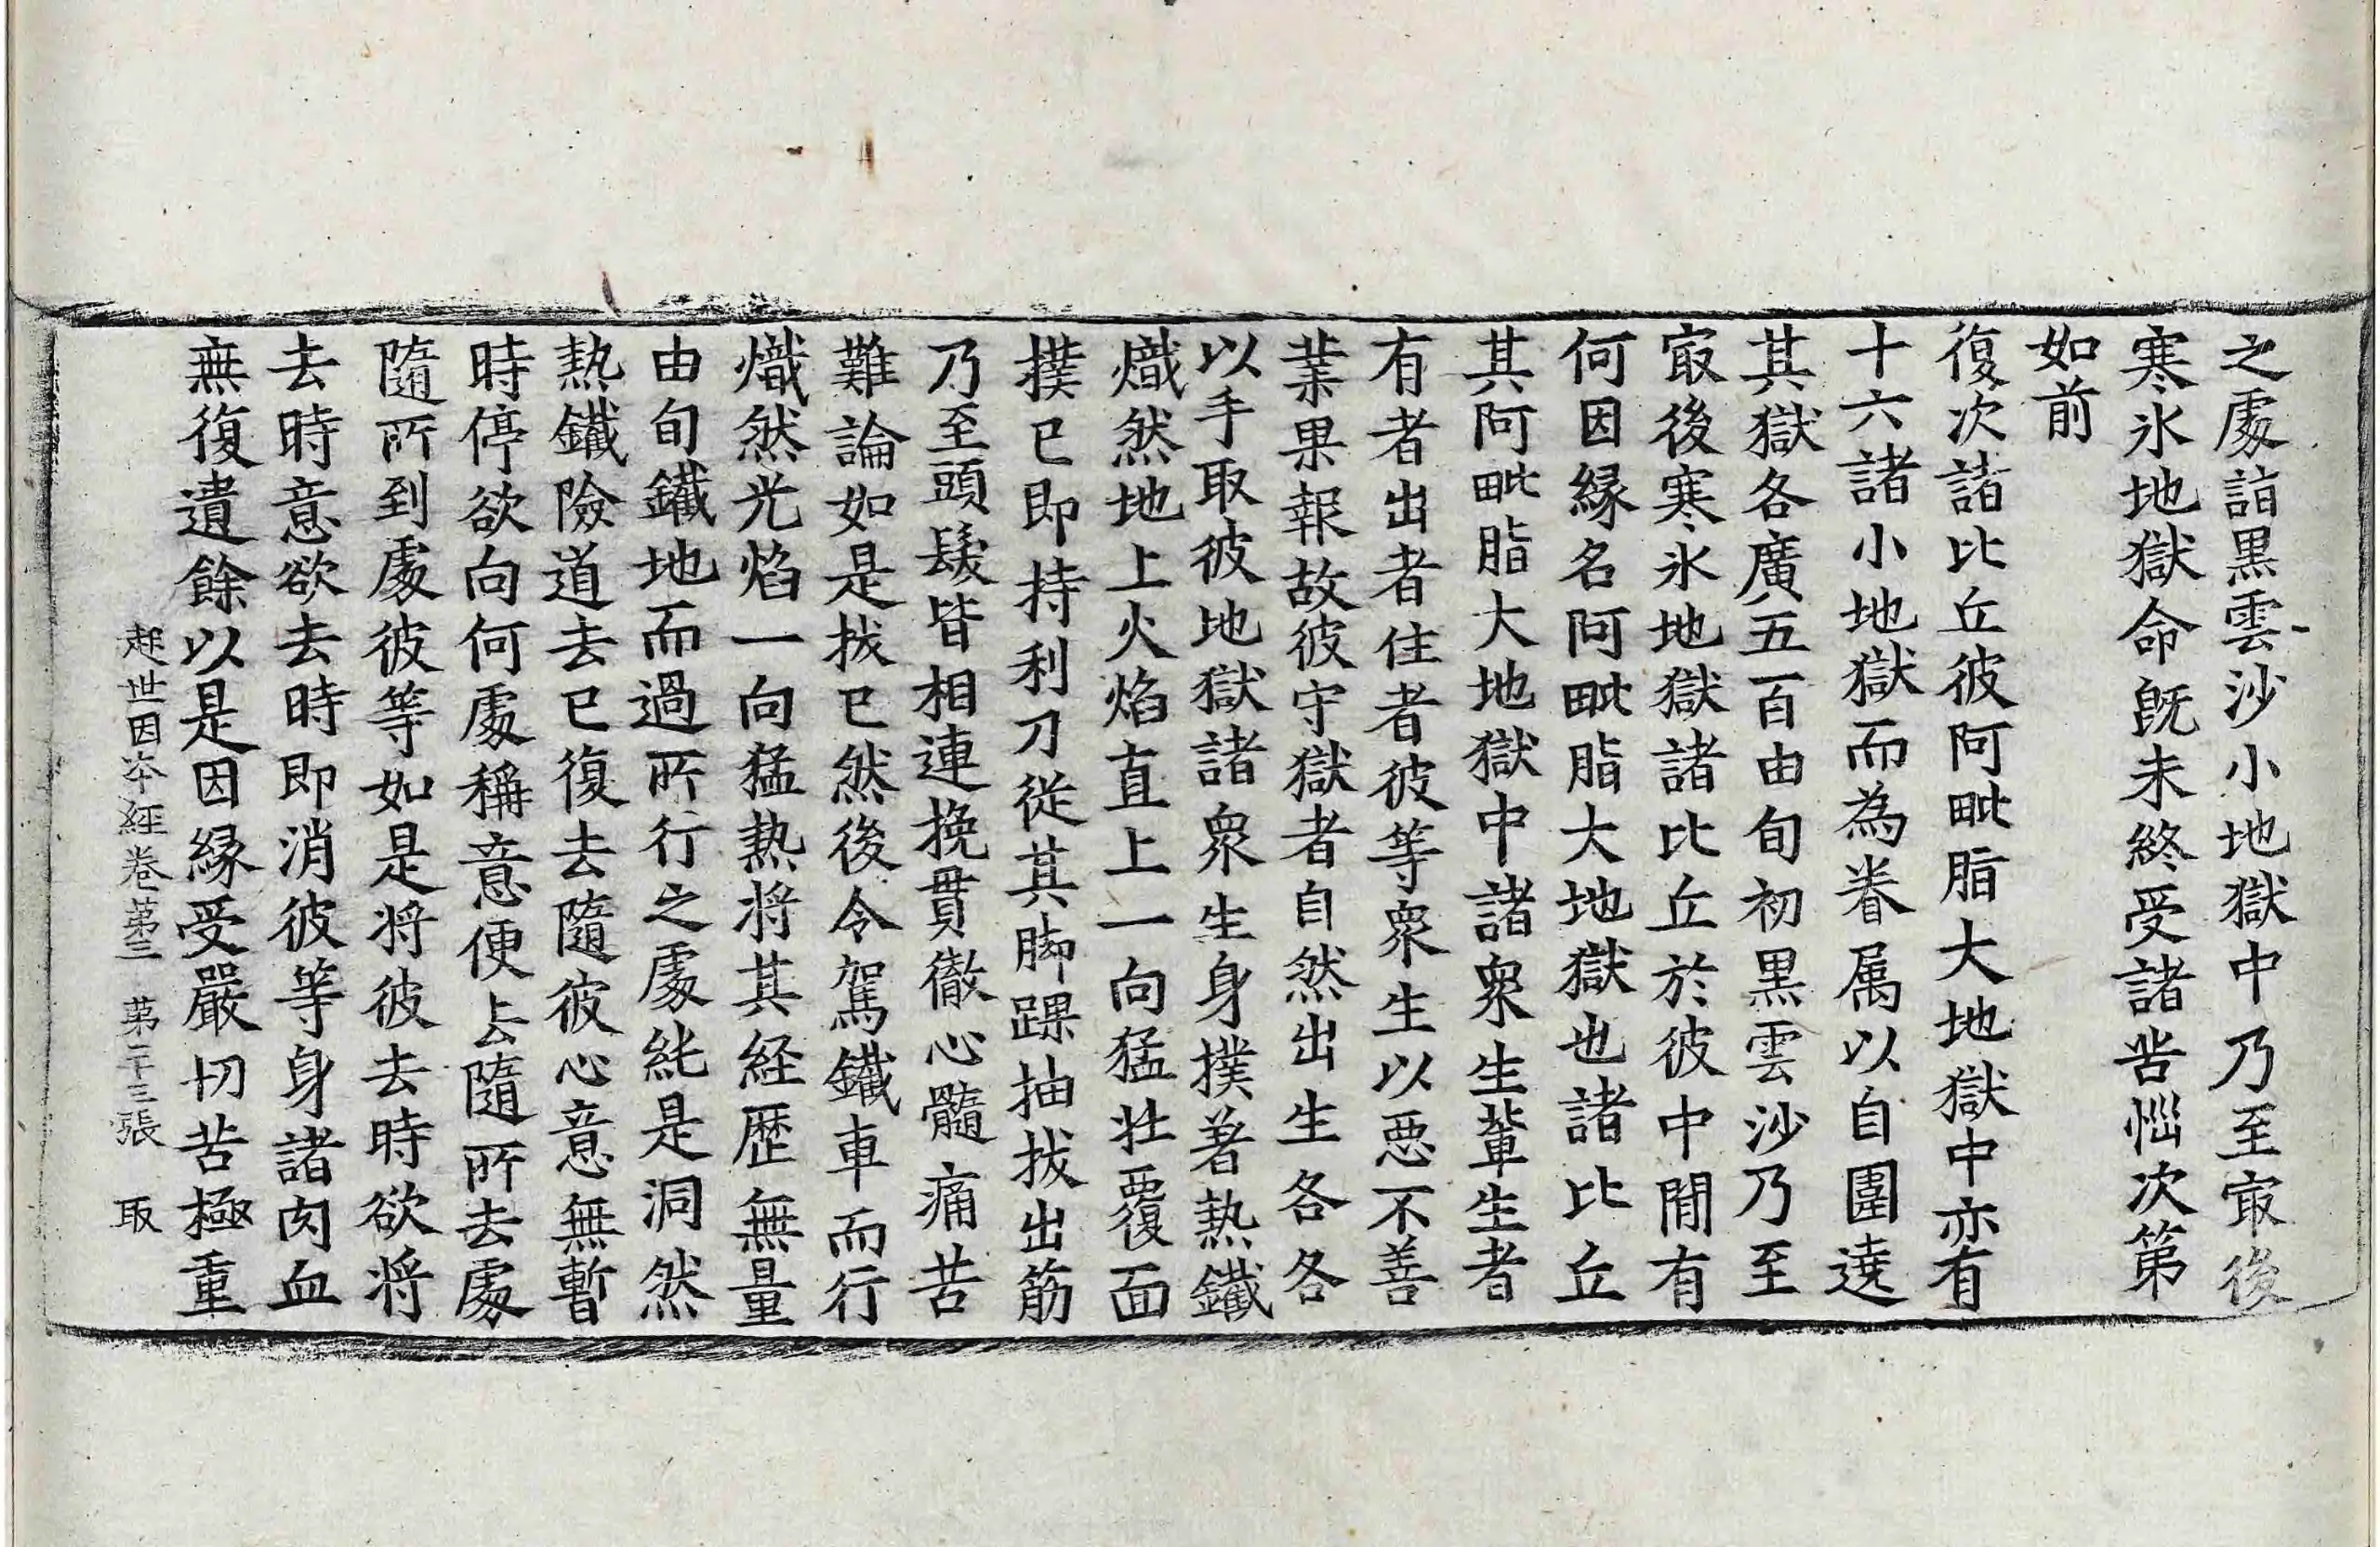 之處詣黒雲沙小地獄中乃至㝡後
寒氷地獄命旣未終受諸苦惱次第
如前
復次諸比丘彼阿毗脂大地獄中亦有
十六諸小地獄而為眷属以自圍遶
其獄各廣五百由旬初黒雲沙乃至
㝡後寒氷地獄諸比丘於彼中閒有
何因縁名阿毗脂大地獄也諸比丘
其阿毗脂大地獄中諸衆生輩生者
有者出者住者彼等衆生以惡不善
業果報故彼守獄者自然出生各各
以手取彼地獄諸衆生身撲著熱鐵
熾然地上火焰直上一向猛壮覆面
撲已即持利刀從其脚踝抽拔出筋
乃至頭髮皆相連挽貫徹心髓痛苦
難論如是拔已然後令駕鐵車而行
熾然光焰一向猛熱将其経歴無量
由旬鐵地而過所行之處純是洞然
熱鐵險道去已復去隨彼心意無暫
時停欲向何處稱意便去隨所去處
隨所到處彼等如是将彼去時欲将
去時意欲去時即消彼等身諸肉血
無復遺餘以是因縁受嚴切苦極重
起世因夲經卷第三 第二十三張 取